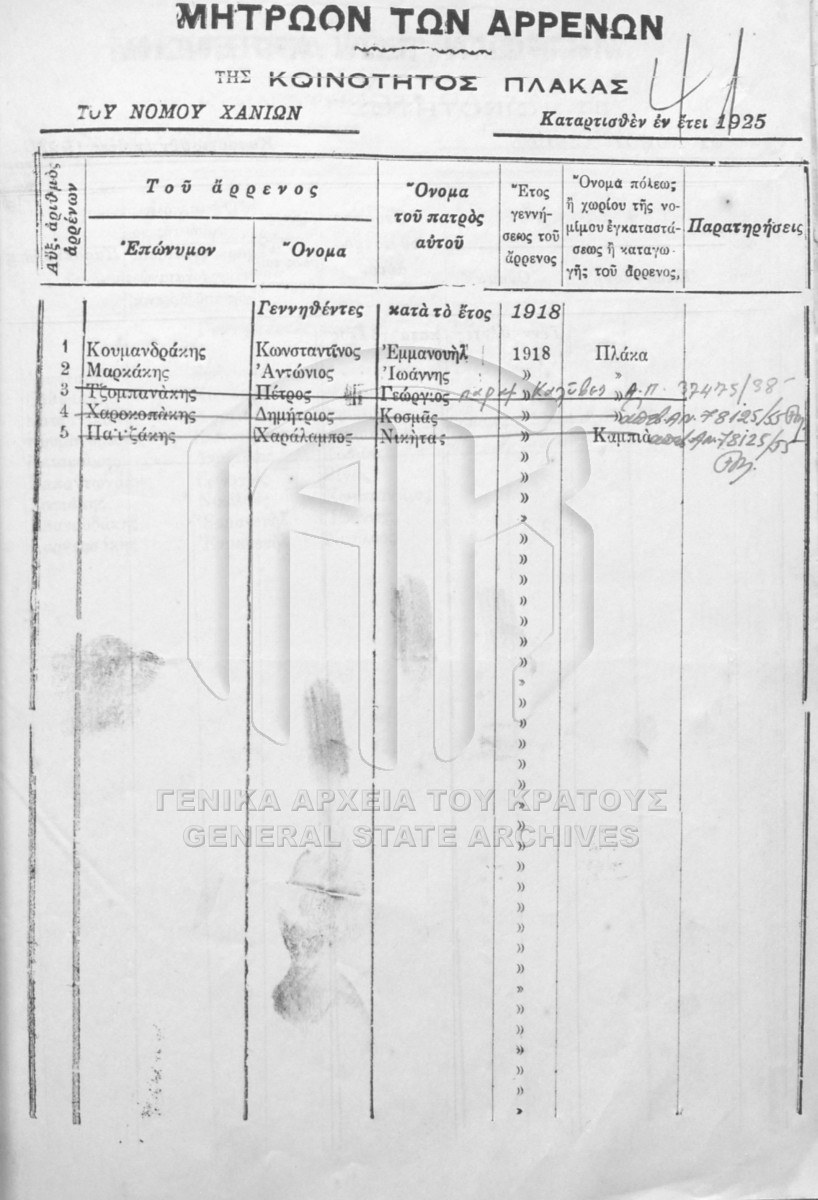 ΜΗΤΡΩΟΝ ΤΩΝ ΑΡΡΕΝΩΝ
ΤΗΣ ΚΟΙΝΟΤΗΤΟΣ ΠΛΑΚΑΣ
41
ΤΟΥ ΝΟΜΟΥ ΧΑΝΙΩΝ
Καταρτισθὲν ἐν ἔτει 1925
Αὔξ. ἀριθμὸς ἀρρένων
Τοῦ ἄρρενος
Ἐπώνυμον
Ὄνομα
Ὄνομα
τοῦ πατρὸς
αὐτοῦ
Ἔτος
γεννή-
σεως τοῦ
ἄρρενος
Ὄνομα πόλεως
ἢ χωρίου τῆς νο-
μίμου ἐγκαταστά-
σεως ἢ καταγω-
γῆς τοῦ ἄρρενος,
Παρατηρήσεις
Γεννηθέντες κατὰ τὸ ἔτος 1918
1 Κουμανδράκης Κωνσταντῖνος Ἐμμανουὴλ 1918 Πλάκα
2 Μαρκάκης Ἀντώνιος Ἰωάννης » »
3 Τζομπανάκης Πέτρος Γεώργιος » » Α.Π. 37475/38
4 Χαροκοπάκης Δημήτριος Κοσμᾶς » » 78125/55
5 Παϊζάκης Χαράλαμπος Νικήτας » Καμπιά 78125/55
»
»
»
»
»
»
»
»
»
»
»
»
»
»
»
»
»
»
»
»
»
»
»
»
»
»
»
»
»
»
»
»
»
ΓΕΝΙΚΑ ΑΡΧΕΙΑ ΤΟΥ ΚΡΑΤΟΥΣ
GENERAL STATE ARCHIVES